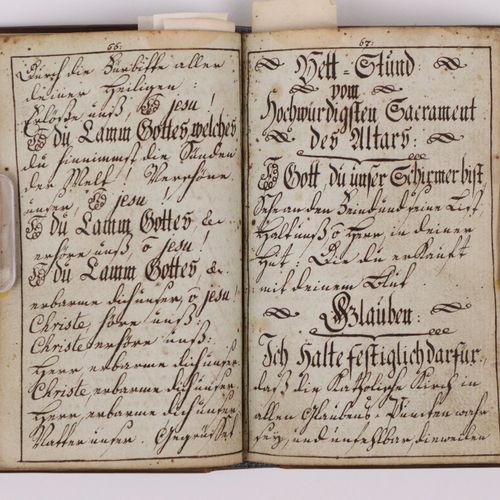 66:
Durch die Fürbitte aller
deiner Heiligen:
Erlöse unß, O Jesu!
O du Lamm Gottes, welches
du hinnimmst die Sünden
der Welt! Verschone
unser, O Jesu!
O du Lamm Gottes &c.
erhöre unß, o Jesu!
O du Lamm Gottes &c.
erbarme dich unser, o Jesu!
Christe, höre unß:
Christe erhöre unß:
Herr erbarme dich unser
Christe, erbarme dich unser.
Herr, erbarme dich unser
Vatter unser. Gegrüsset
67:
Bett-Stund
vom
Hochwürdigsten Sacrament
des Altars:
O Gott, du unser Schirmer bist,
Sehe an den Feind und seine List,
Halt unß o Herr, in deiner
Hut! Die du erkauft
mit deinem Blut
Glauben:
Ich Halte festiglich darfür,
daß die Katholische Kirch in
allen Glaubens-Puncten wahr
sey, und unfehlbar, dieweilen